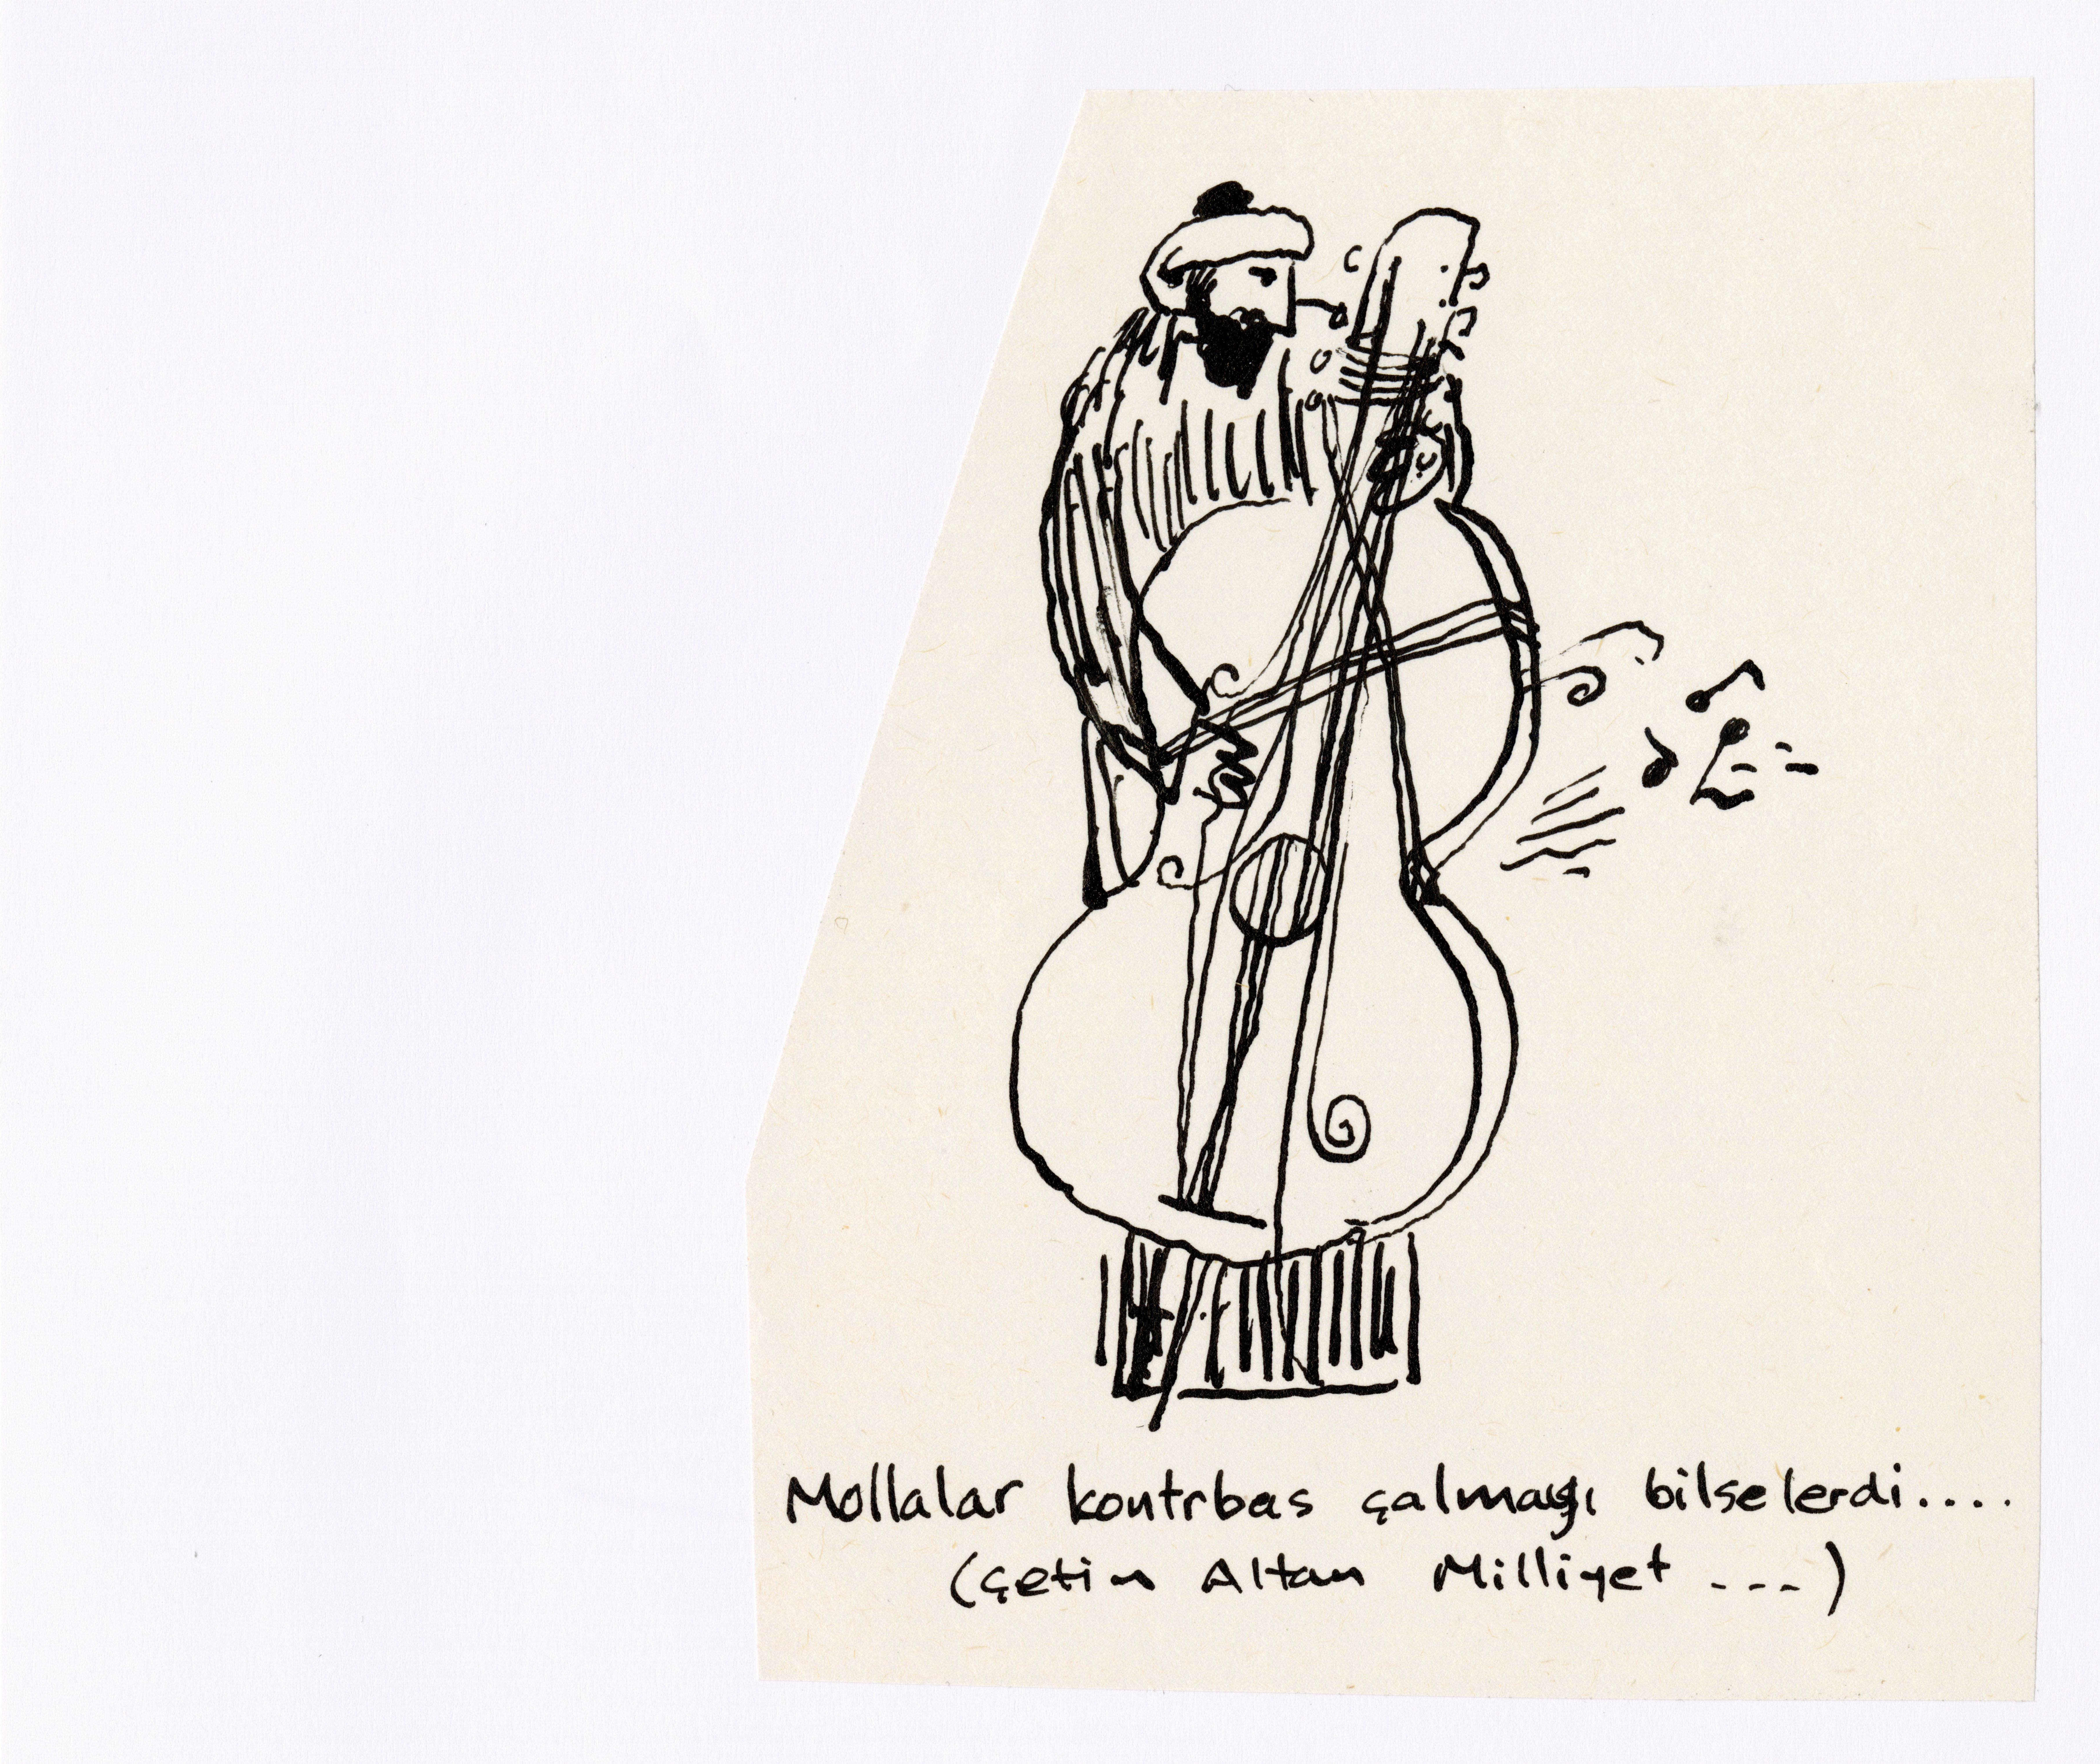 Mollalar kontrbas çalmayı bilselerdi....
(Çetin Altan Milliyet ---)